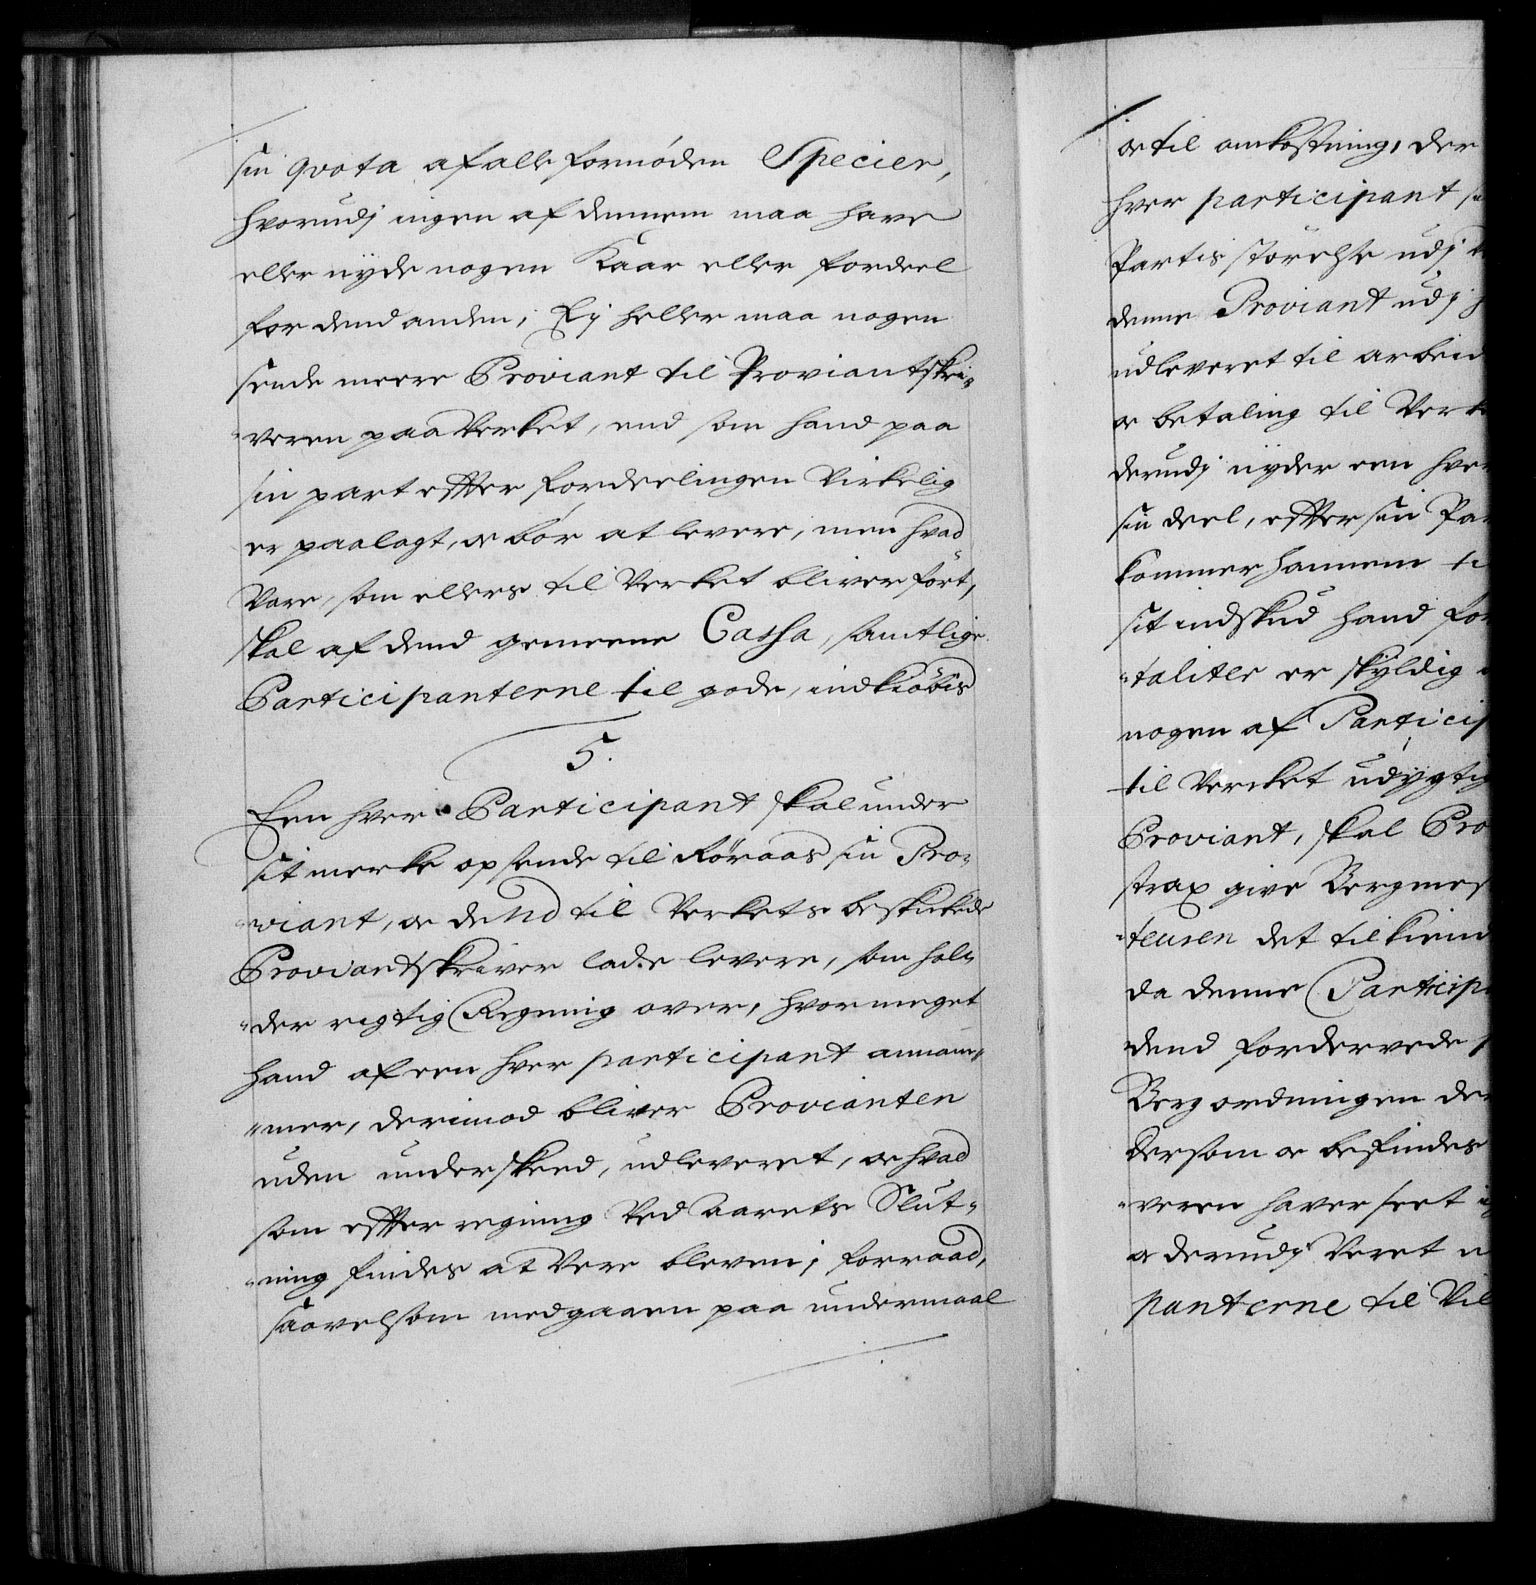 sin qvota af alle fornöden Specier,
hvorudj ingen af dennem maa have
eller nyde nogen Kaar eller fordeel
for dend anden, Ej heller maa nogen
sende meere Proviant til Proviantskri„
„veren paa Verket, end som hand paa
sin part effter fordeelingen Virkelig
er paalagt, og bör at levere, men hvad
Vare, som ellers til Verket bliver fört,
skal af dend gemeene Cassa, samtlige
Participanterne til gode, indkiöbis
5.
Een hver Participant skal under
sit merke opsende til Röraas sin Pro„
„viant, og dend til Verkets beskikede
Proviantskriver lade levere, som hol„
„der rigtig Regning over, hvor meget
hand af een hver participant annam„
„mer, derimod bliver Provianten
uden underskeed, udleveret, og hvad
som effter regning Ved Aarets Slut„
„ning findes at Vere bleven i forraad,
saavelsom medgaaen paa undermaal
og til omkostning, der
hver participant
Partis störelse udj
denne Proviant udj
udleveret til arbeid
og betaling til Verk
derudj nyder een hver
sin deel, effter sin Par
kommer hannem ti
sit indskud hand for
„taliter er skyldig
nogen af Particip
til Verket udygtig
Proviant, skal Pro
strax give Bergmes
„teuren det tilkiend
da denne Particip
dend fordervede
Berg ordningen der
Dersom og befindes
„veren haver seet
og derudj Veret
panterne til Vil